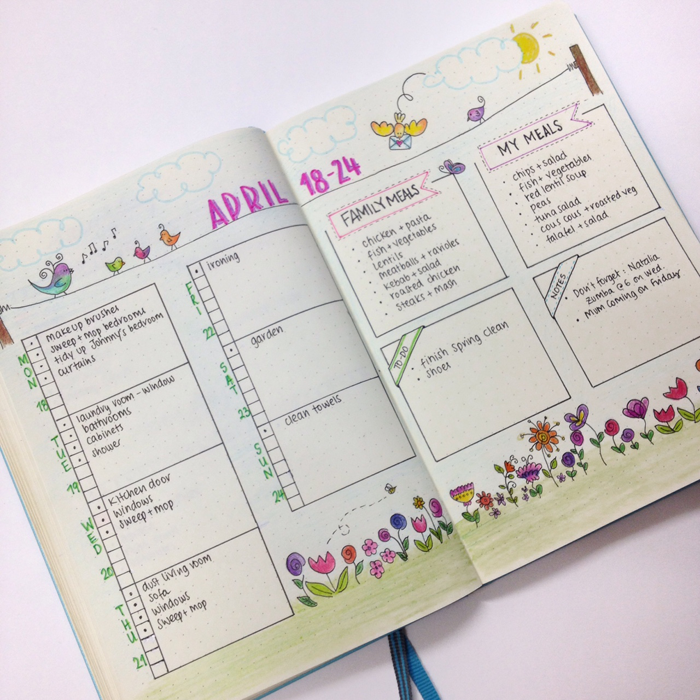 APRIL 18-24
MON
18
makeup brushes
sweep + mop bedrooms
tidy up Johnny's bedroom
curtains
TUE
19
laundry room - window
bathrooms
cabinets
shower
WED
20
kitchen door
windows
sweep + mop
THU
21
dust living room
sofa
windows
sweep + mop
FRI
22
Ironing
SAT
23
garden
SUN
24
clean towels
FAMILY MEALS
chicken + pasta
fish + vegetables
lentils
meatballs + ravioles
kebab + salad
roasted chicken
steaks + mash
MY MEALS
chips + salad
fish + vegetables
red lentil soup
peas
tuna salad
cous cous + roasted veg
falafel + salad
TO-DO
finish spring clean
shoes
NOTES
Don't forget: Natalia
zumba @ 6 on wed.
Mum coming on Friday